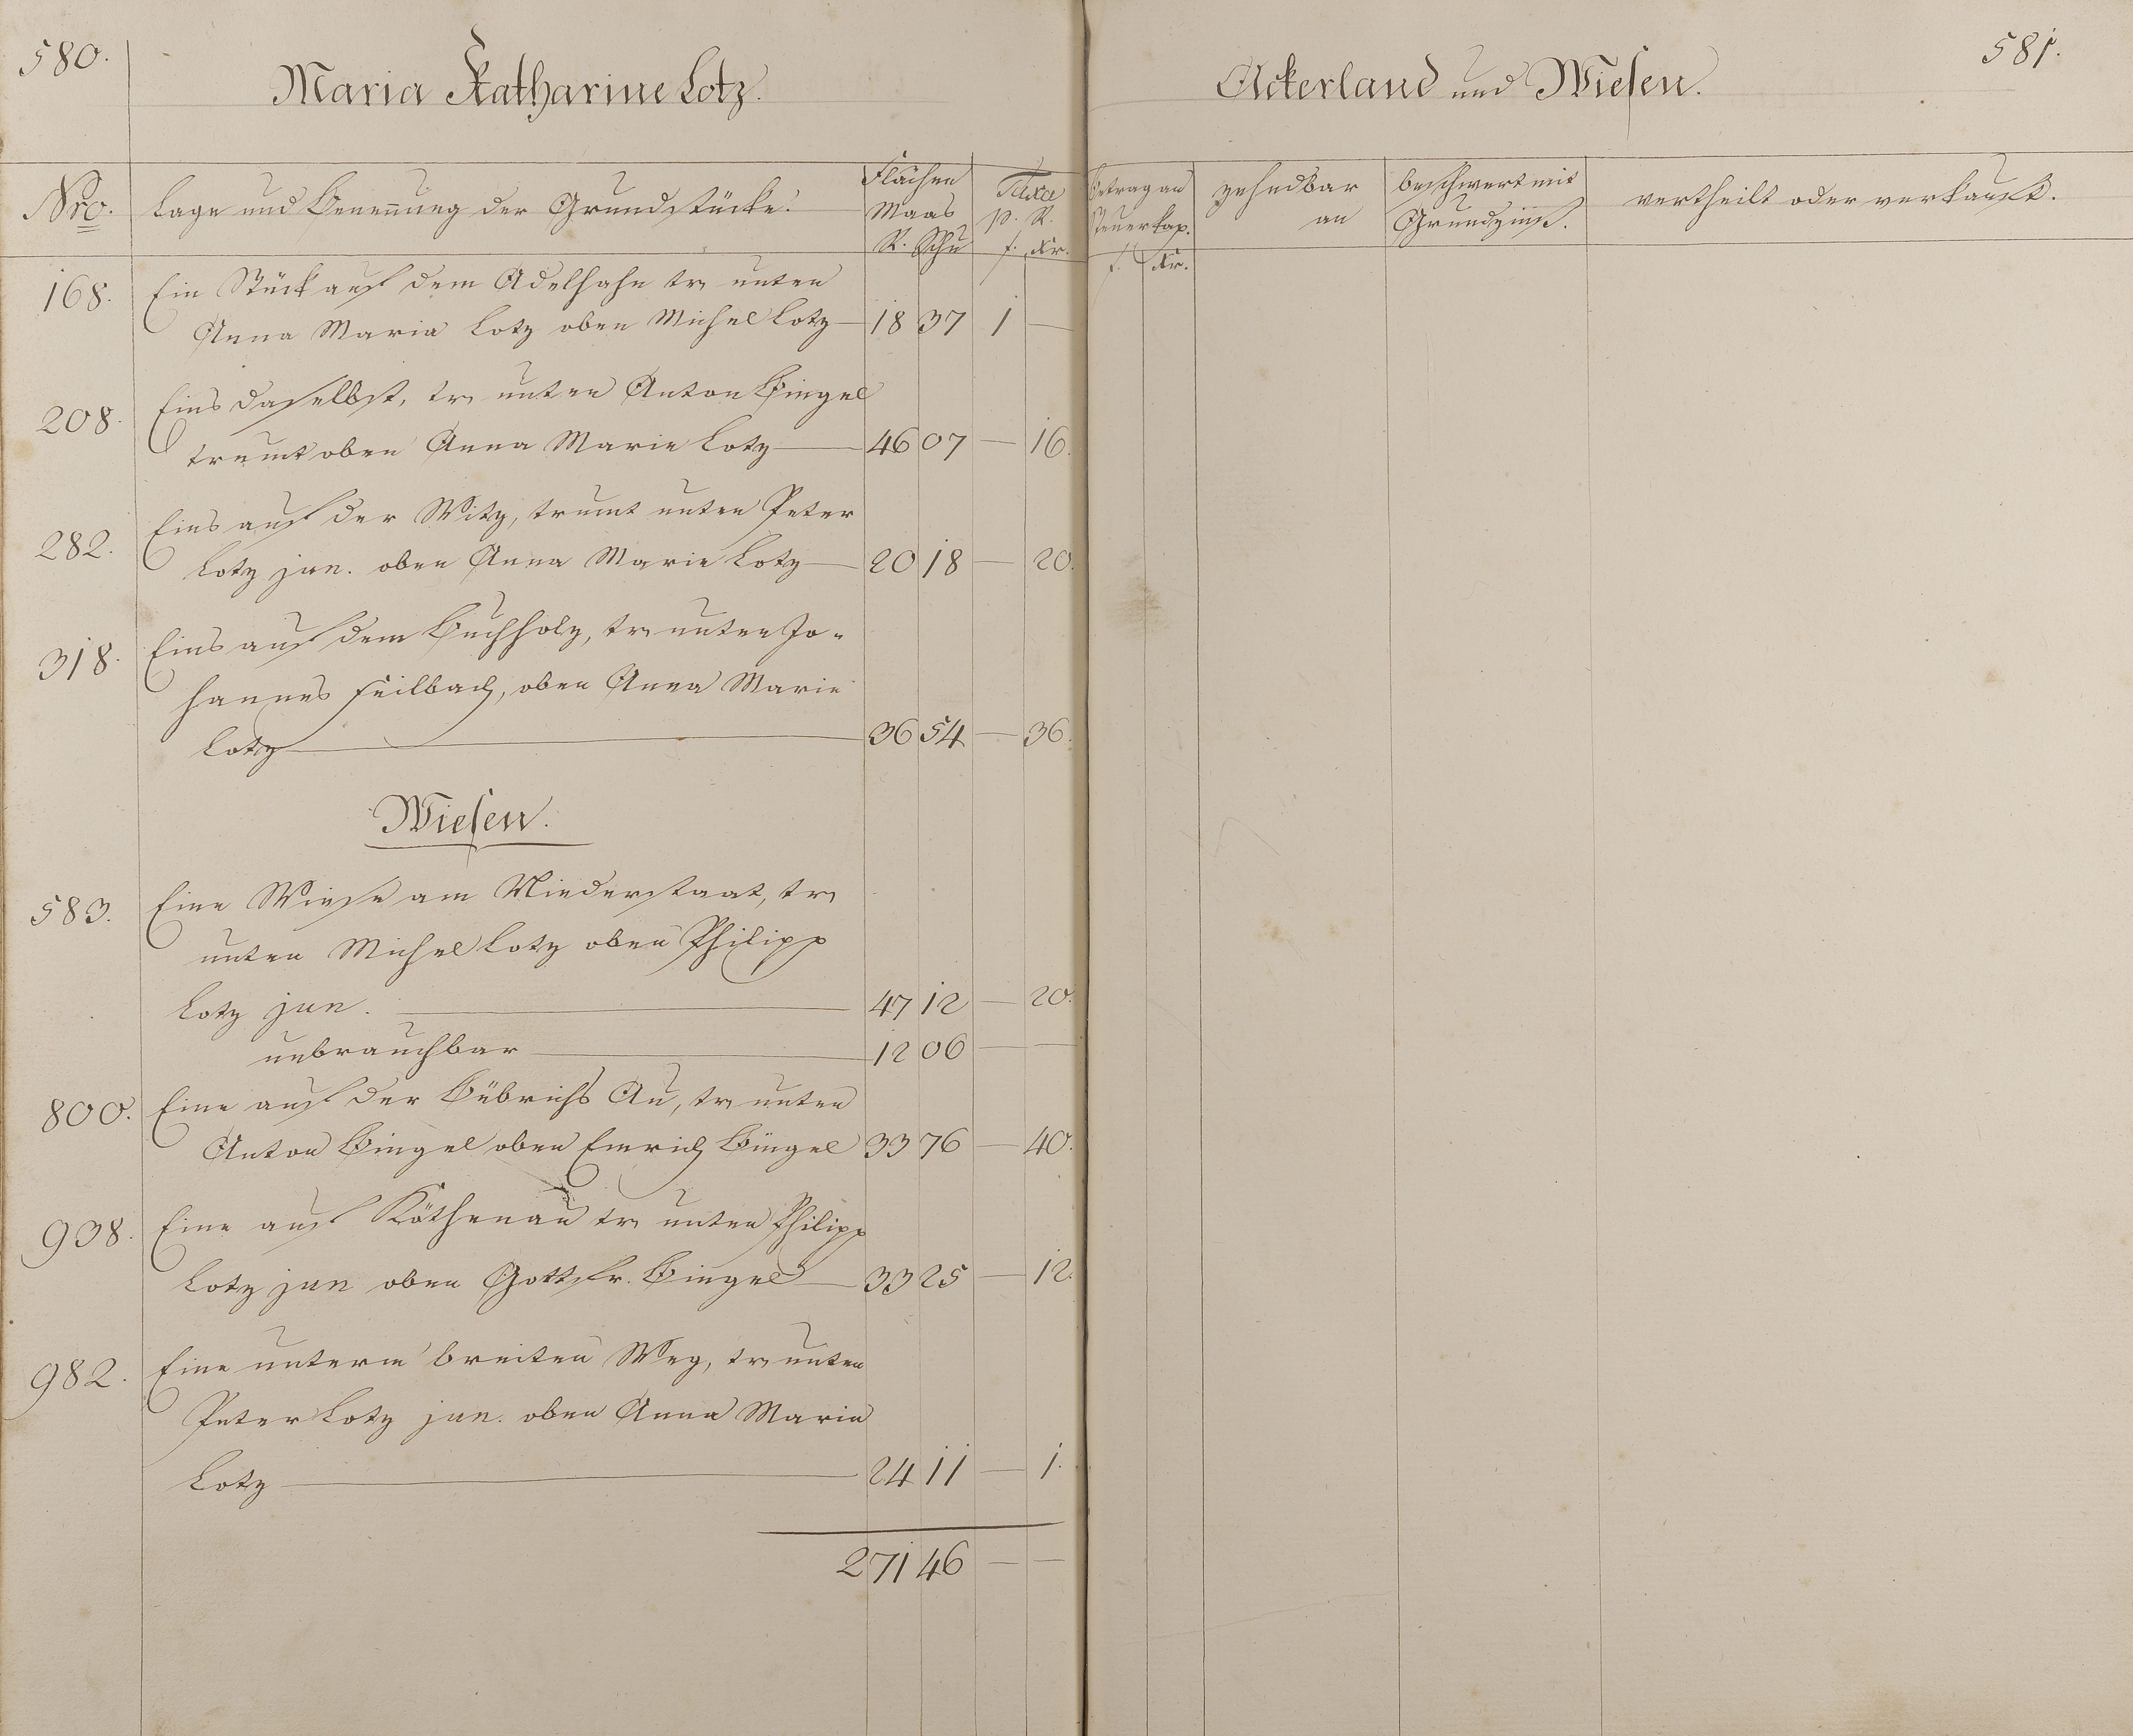 580.
Maria Katharine Lotz.
Nro. Lage und Benennung der Grundstücke. Flächen Maas R. Schu Taxa p. R. f. Xr.
168. Ein Stück auf dem Adelhahn tr. unten
Anna Maria Lotz oben Michel Lotz — 18 37 1 —
208. Eins daselbst, tr. unten Anton Bingel
trumt oben Anna Marie Lotz — 46 07 — 16.
282. Eins auf der Witz, trumt unten Peter
Lotz jun. oben Anna Marie Lotz — 20 18 — 20.
318. Eins auf dem Buchholz, tr. unten Jo-
hannes Feilbach, oben Anna Marie
Lotz — 36 54 — 36.
Wiesen.
583. Eine Wiese am Niederstaat, tr.
unten Michel Lotz oben Philipp
Lotz jun. — 47 12 — 20.
unbrauchbar — 12 06 — —
800. Eine auf der Bübrichs Au, tr. unten
Anton Bingel oben Emrich Bingel 33 76 — 40.
938. Eine auf Köthenau tr. unten Philipp
Lotz jun oben Gottfr. Bingel — 33 25 — 12.
982. Eine unterm breiten Weg, tr. unten
Peter Lotz jun. oben Anna Marie
Lotz — 24 11 — 1.
271 46 — —
581.
Ackerland und Wiesen.
Betrag an Steuerkap. f. Xr. zehndbar an beschwert mit Grundzinß. vertheilt oder verkauft.